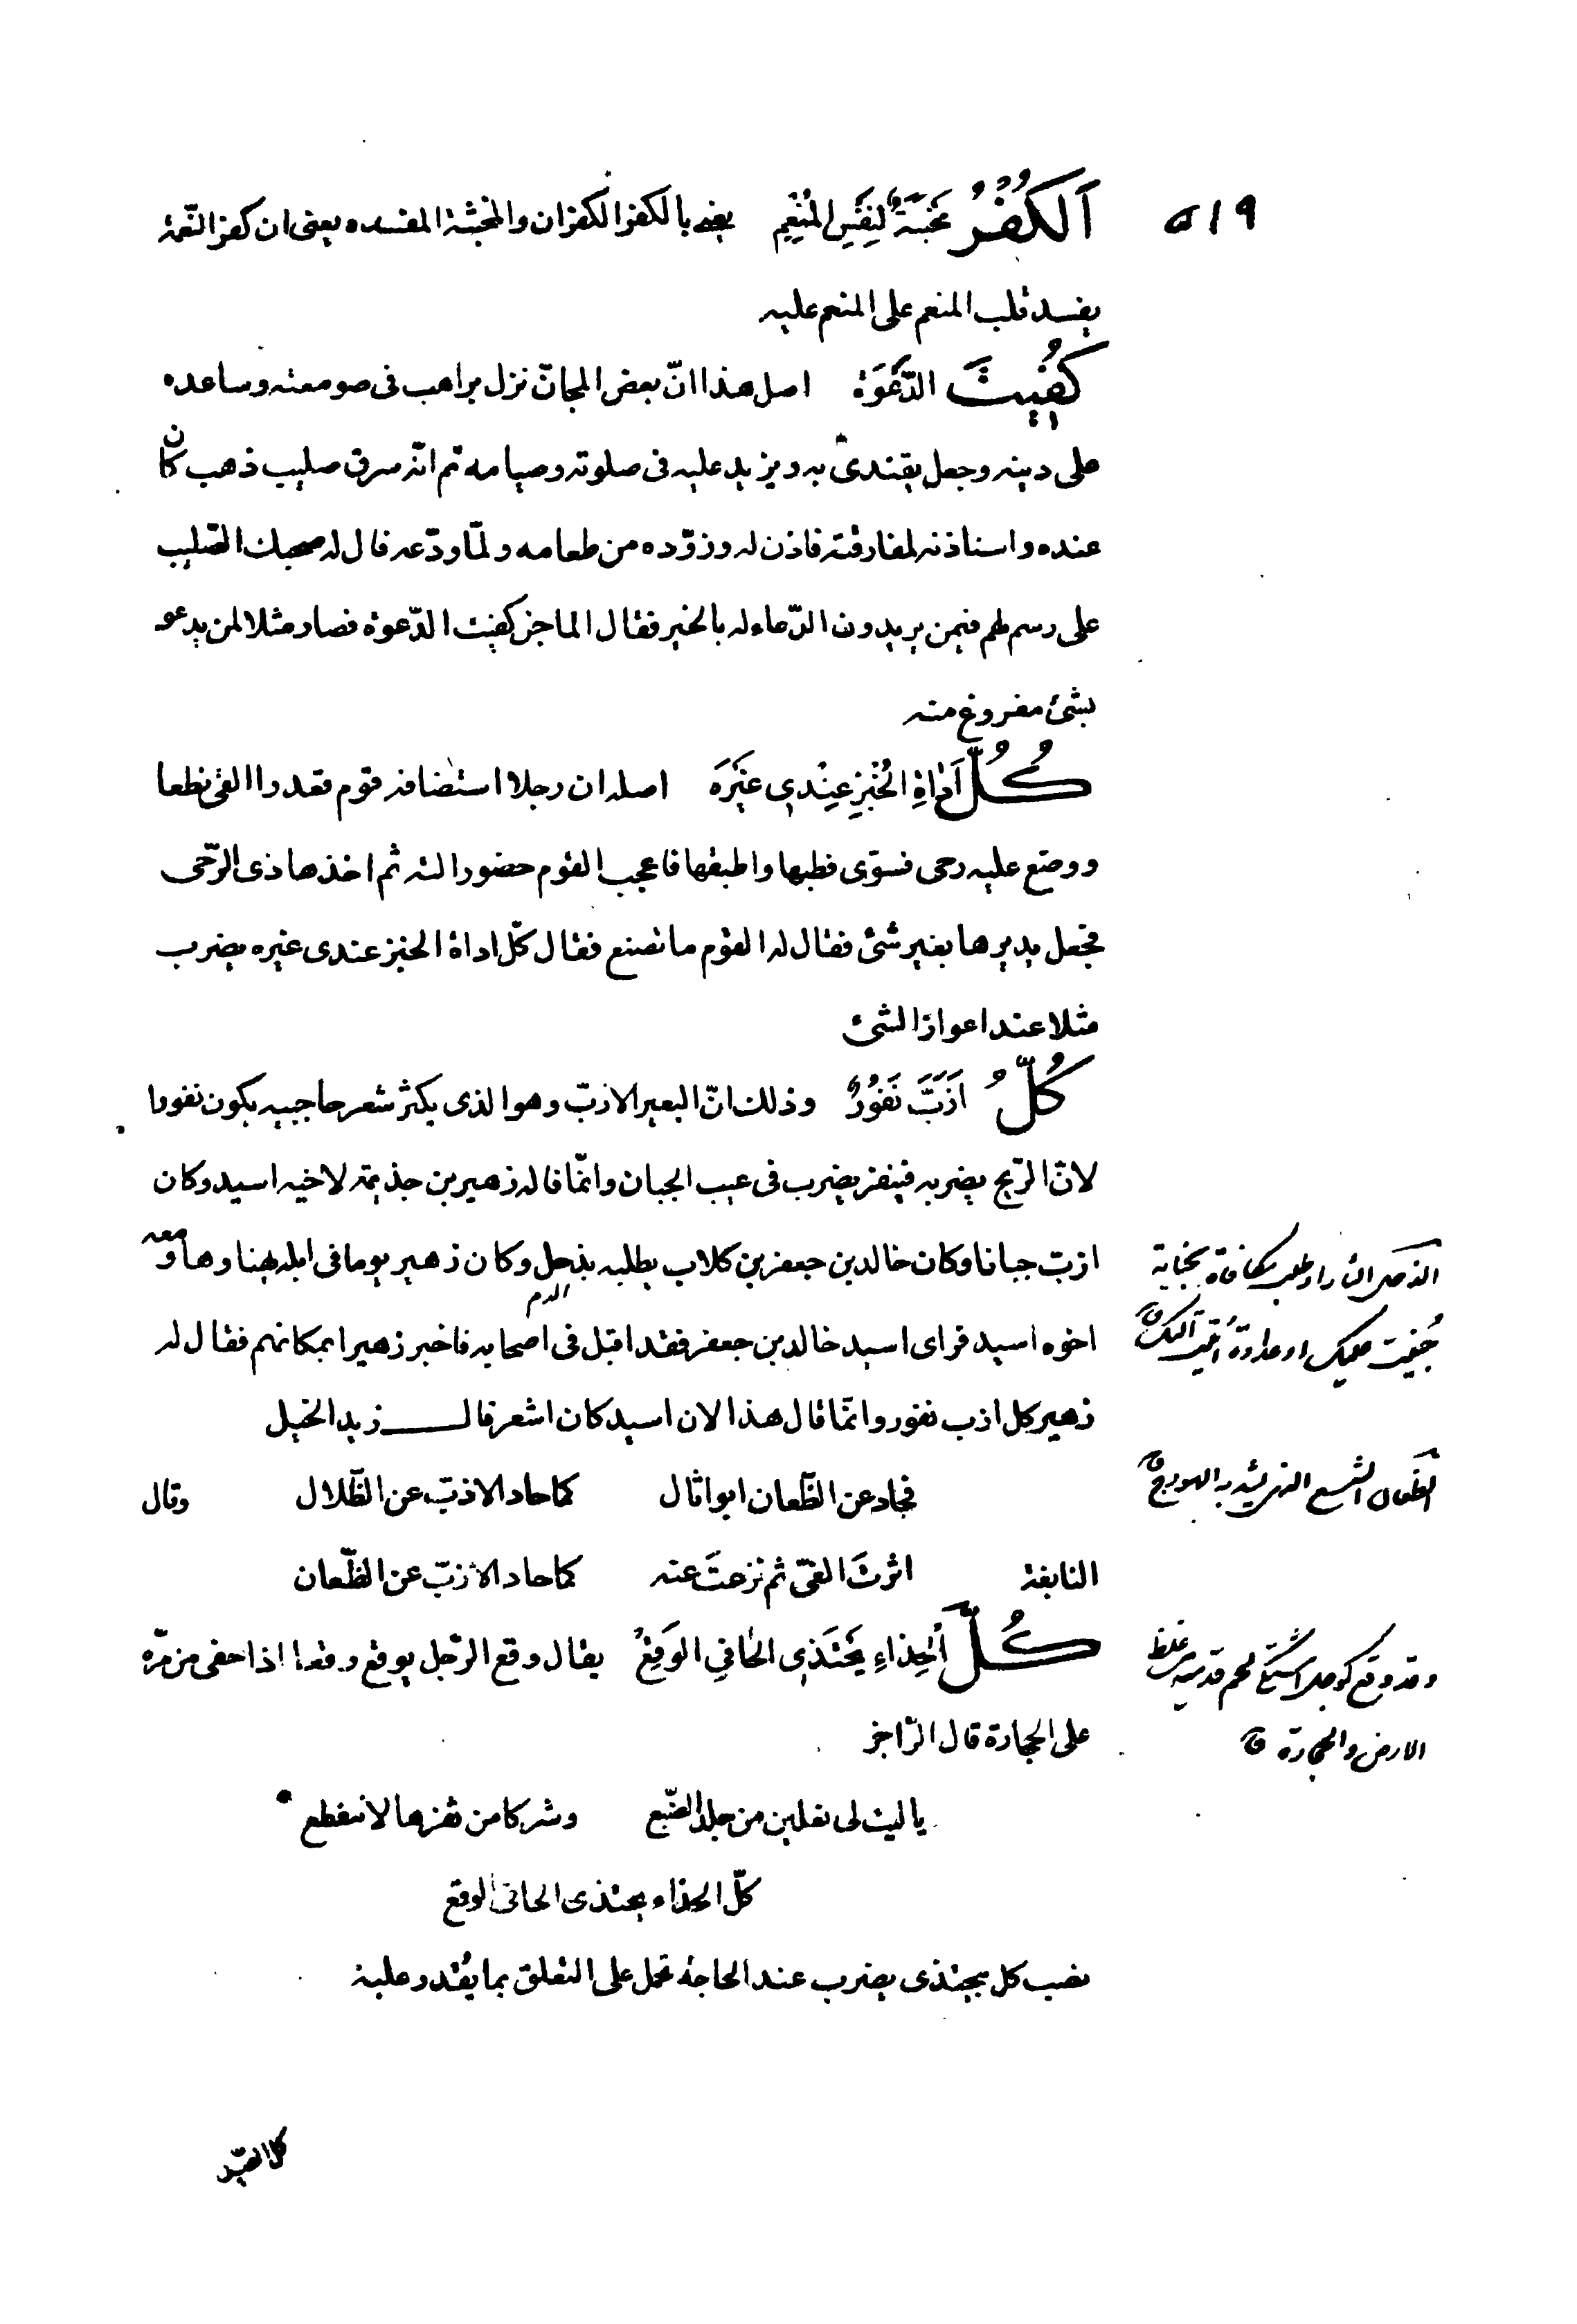 ٥١٩
اَلكُفْرُ مَخْبَثَةٌ لِنَفْسِ المُنْعِمِ يعنى بالكفر الكفران والمخبثة المفسده يعنى ان كفر النّعمة
يفسد قلب المنعم على المنعم عليه
كُفِيتَ الدَّعْوَةَ اصل هذا انّ بعض المجانّ نزل براهب فى صومعته وساعده
على دينه وجعل يقتدى به ويزيد عليه فى صلوته وصيامه ثم انّه سرق صليب ذهب كان
عنده واستاذنه لمفارقته فاذن له وزوّده من طعامه ولمّا ودّعه قال له صحبك الصّليب
على رسم لهم فيمن يريدون الدّعاء له بالخير فقال الماجن كفيت الدّعوة فصار مثلا لمن يدعو
بشئ مفروغ منه
كُلُّ اَدَاةِ الخُبْزِ عِنْدِي غَيْرَهَ اصله ان رجلا استضافه قوم فقعدوا القى نطعا
ووضع عليه رحى فسوّى قطبها واطبقها فاعجب القوم حضور الته ثم اخذ هاذى الرّحى
فجعل يديرها بغير شئ فقال له القوم ما تصنع فقال كلّ اداة الخبز عندى غيره يضرب
مثلا عند اعواز الشئ
كُلُّ اَزَبَّ نَفُورٌ وذلك انّ البعير الازبّ وهو الذى يكثر شعر حاجبيه يكون نفورا
لانّ الرّيح يضربه فينفر يضرب فى عيب الجبان وانّما قاله زهير بن جذيمة لاخيه اسيد وكان
ازبّ جبانا وكان خالد بن جعفر بن كلاب يطلبه بذحل وكان زهير يوما فى ابله يهناوها ومعه
الدم
اخوه اسيد فراى اسيد خالد بن جعفر فقد اقبل فى اصحابه فاخبر زهيرا بمكانهم فقال له
زهير كل ازب نفور وانّما قال هذا لان اسيد كان اشعر قال زيد الخيل
فحاد عن الظّعان ابو اثال كما حاد الازبّ عن الظّلال وقال
النابغة اثرتَ الغىّ ثم نزعتَ عنه كما حاد الازبّ عن الظّعان
كُلَّ الْحِذاءِ يَحْتَذِي الحَافِي الوَقِعْ يقال وقع الرّجل يوقع وقعا اذا حفى من مرّه
على الحجارة قال الرّاجز
يا ليت لى نعلين من جلد الضّبع وشركا من ثفرها لا تنقطع
كلّ الحذاء يحتذى الحافى الوقع
نصب كل بيحتذى يضرب عند الحاجة تحمل على التعلق بما يُقدر عليه
الذحل الثار او طلب مكافاة بجناية
جُنيت عليك او عداوة اُتيت اليك ق
الظعان الشسع الذى يشد به الهودج ق
وقد وقع كوجل اشتكى لحم قدميه من غلظ
الارض والحجارة ق
كل الصيد